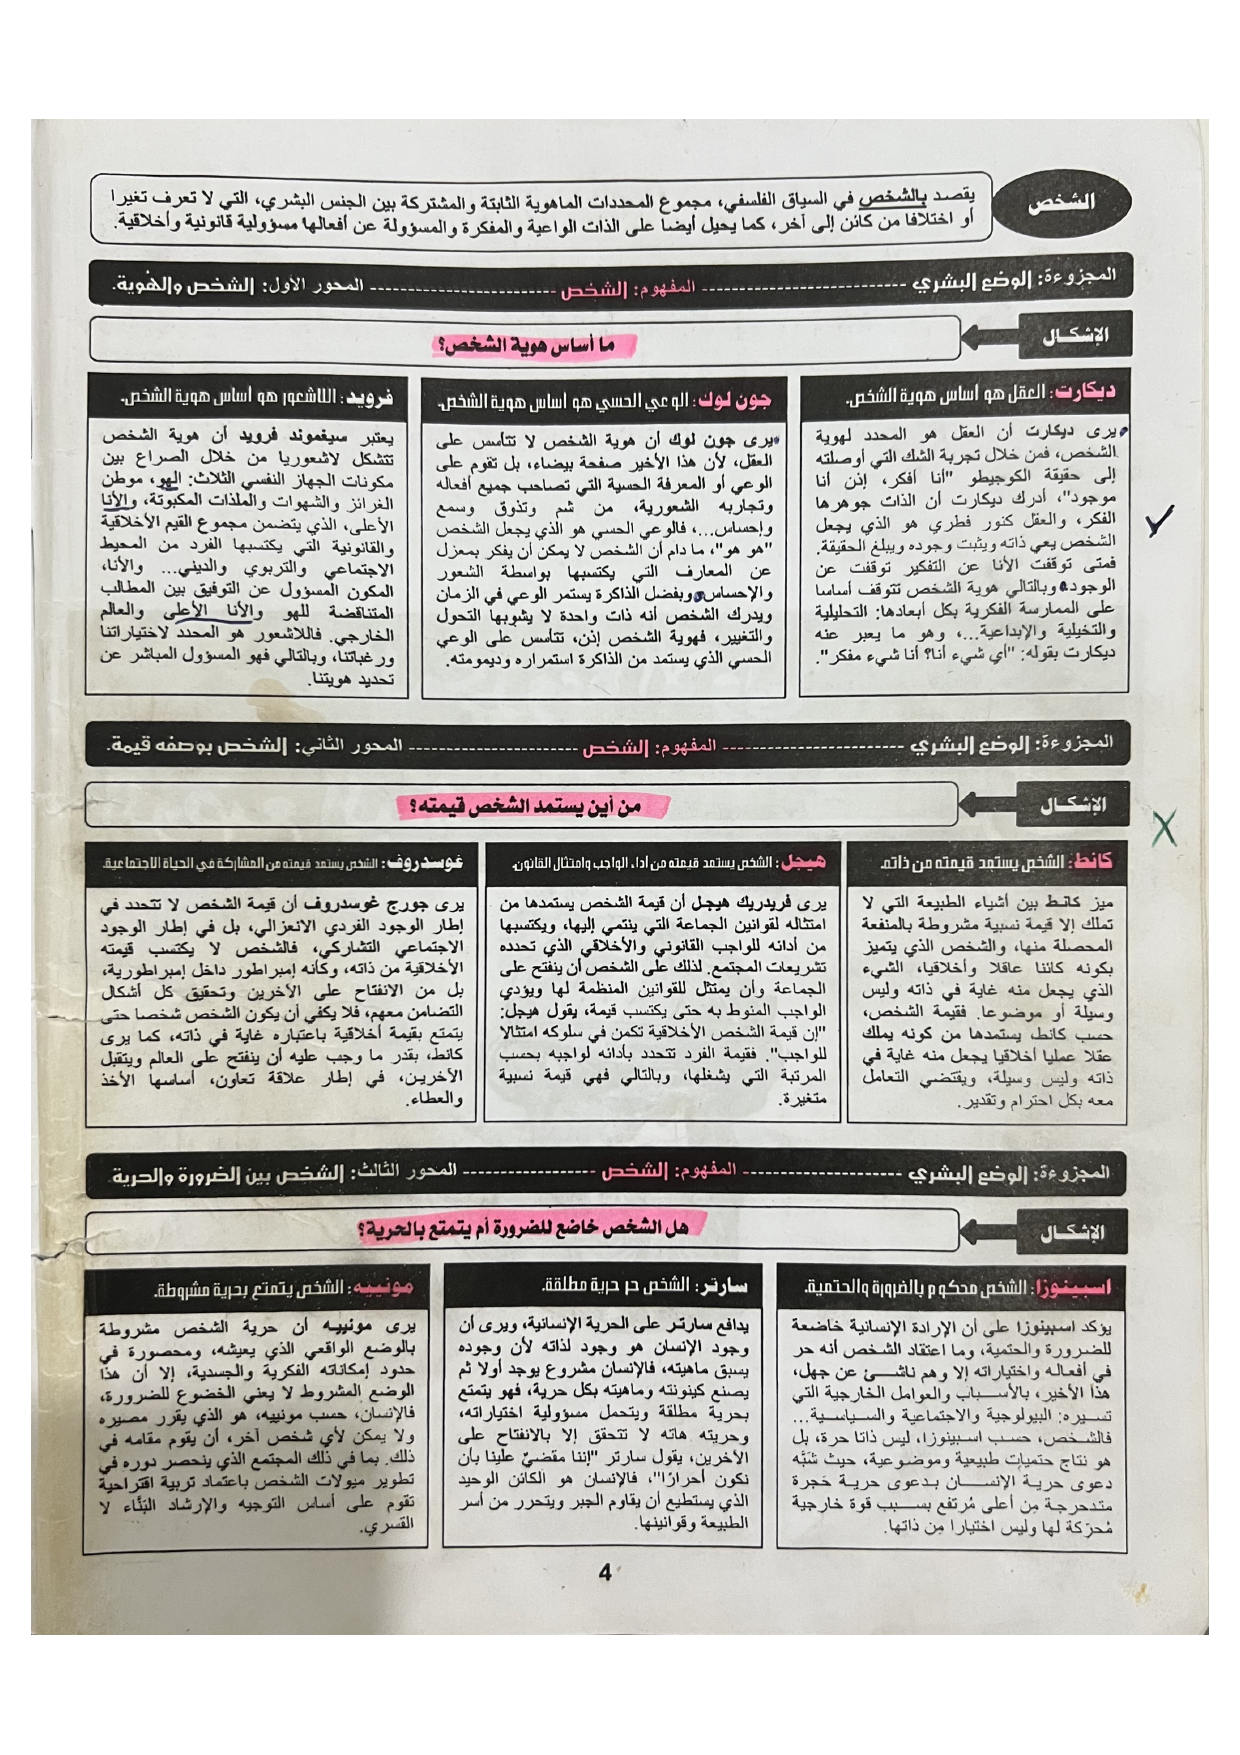 الشخص
يقصد بالشخص في السياق الفلسفي، مجموع المحددات الماهوية الثابتة والمشتركة بين الجنس البشري، التي لا تعرف تغيرا
أو اختلافا من كائن إلى آخر، كما يحيل أيضا على الذات الواعية والمفكرة والمسؤولة عن أفعالها مسؤولية قانونية وأخلاقية.
المجزوءة: الوضع البشري ---------- المفهوم: الشخص ---------- المحور الأول: الشخص والهُوية.
الإشكال
ما أساس هوية الشخص؟
ديكارت: العقل هو أساس هوية الشخص.
يرى ديكارت أن العقل هو المحدد لهوية
الشخص، فمن خلال تجربة الشك التي أوصلته
إلى حقيقة الكوجيطو "أنا أفكر، إذن أنا
موجود"، أدرك ديكارت أن الذات جوهرها
الفكر، والعقل كنور فطري هو الذي يجعل
الشخص يعي ذاته ويثبت وجوده ويبلغ الحقيقة.
فمتى توقفت الأنا عن التفكير توقفت عن
الوجود، وبالتالي هوية الشخص تتوقف أساسا
على الممارسة الفكرية بكل أبعادها: التحليلية
والتخيلية والإبداعية...، وهو ما يعبر عنه
ديكارت بقوله: "أي شيء أنا؟ أنا شيء مفكر".
جون لوك: الوعي الحسي هو أساس هوية الشخص.
يرى جون لوك أن هوية الشخص لا تتأسس على
العقل، لأن هذا الأخير صفحة بيضاء، بل تقوم على
الوعي أو المعرفة الحسية التي تصاحب جميع أفعاله
وتجاربه الشعورية، من شم وتذوق وسمع
وإحساس...، فالوعي الحسي هو الذي يجعل الشخص
"هو هو"، ما دام أن الشخص لا يمكن أن يفكر بمعزل
عن المعارف التي يكتسبها بواسطة الشعور
والإحساس، وبفضل الذاكرة يستمر الوعي في الزمان
ويدرك الشخص أنه ذات واحدة لا يشوبها التحول
والتغيير، فهوية الشخص إذن، تتأسس على الوعي
الحسي الذي يستمد من الذاكرة استمراره وديمومته.
فرويد: اللاشعور هو أساس هوية الشخص.
يعتبر سيغموند فرويد أن هوية الشخص
تتشكل لاشعوريا من خلال الصراع بين
مكونات الجهاز النفسي الثلاث: الهو، موطن
الغرائز والشهوات والملذات المكبوتة، والأنا
الأعلى، الذي يتضمن مجموع القيم الأخلاقية
والقانونية التي يكتسبها الفرد من المحيط
الاجتماعي والتربوي والديني... والأنا،
المكون المسؤول عن التوفيق بين المطالب
المتناقضة للهو والأنا الأعلى والعالم
الخارجي. فاللاشعور هو المحدد لاختياراتنا
ورغباتنا، وبالتالي فهو المسؤول المباشر عن
تحديد هويتنا.
المجزوءة: الوضع البشري ---------- المفهوم: الشخص ---------- المحور الثاني: الشخص بوصفه قيمة.
الإشكال
من أين يستمد الشخص قيمته؟
كانط: الشخص يستمد قيمته من ذاته.
ميز كانط بين أشياء الطبيعة التي لا
تملك إلا قيمة نسبية مشروطة بالمنفعة
المحصلة منها، والشخص الذي يتميز
بكونه كائنا عاقلا وأخلاقيا، الشيء
الذي يجعل منه غاية في ذاته وليس
وسيلة أو موضوعا. فقيمة الشخص،
حسب كانط، يستمدها من كونه يملك
عقلا عمليا أخلاقيا يجعل منه غاية في
ذاته وليس وسيلة، ويقتضي التعامل
معه بكل احترام وتقدير.
هيجل: الشخص يستمد قيمته من أداء الواجب وامتثال القانون.
يرى فريدريك هيجل أن قيمة الشخص يستمدها من
امتثاله لقوانين الجماعة التي ينتمي إليها، ويكتسبها
من أدائه للواجب القانوني والأخلاقي الذي تحدده
تشريعات المجتمع. لذلك على الشخص أن ينفتح على
الجماعة وأن يمتثل للقوانين المنظمة لها ويؤدي
الواجب المنوط به حتى يكتسب قيمة، يقول هيجل:
"إن قيمة الشخص الأخلاقية تكمن في سلوكه امتثالا
للواجب". فقيمة الفرد تتحدد بأدائه لواجبه بحسب
المرتبة التي يشغلها، وبالتالي فهي قيمة نسبية
متغيرة.
غوسدروف: الشخص يستمد قيمته من المشاركة في الحياة الاجتماعية.
يرى جورج غوسدروف أن قيمة الشخص لا تتحدد في
إطار الوجود الفردي الانعزالي، بل في إطار الوجود
الاجتماعي التشاركي، فالشخص لا يكتسب قيمته
الأخلاقية من ذاته، وكأنه إمبراطور داخل إمبراطورية،
بل من الانفتاح على الآخرين وتحقيق كل أشكال
التضامن معهم، فلا يكفي أن يكون الشخص شخصا حتى
يتمتع بقيمة أخلاقية باعتباره غاية في ذاته، كما يرى
كانط، بقدر ما وجب عليه أن ينفتح على العالم ويتقبل
الآخرين، في إطار علاقة تعاون، أساسها الأخذ
والعطاء.
المجزوءة: الوضع البشري ---------- المفهوم: الشخص ---------- المحور الثالث: الشخص بين الضرورة والحرية.
الإشكال
هل الشخص خاضع للضرورة أم يتمتع بالحرية؟
اسبينوزا: الشخص محكوم بالضرورة والحتمية.
يؤكد اسبينوزا على أن الإرادة الإنسانية خاضعة
للضرورة والحتمية، وما اعتقاد الشخص أنه حر
في أفعاله واختياراته إلا وهم ناشئ عن جهل،
هذا الأخير، بالأسباب والعوامل الخارجية التي
تسيره: البيولوجية والاجتماعية والسياسية...
فالشخص، حسب اسبينوزا، ليس ذاتا حرة، بل
هو نتاج حتميات طبيعية وموضوعية، حيث شبَّه
دعوى حرية الإنسان بدعوى حرية حَجرة
متدحرجة مِن أعلى مُرتفع بسبب قوة خارجية
مُحرّكة لها وليس اختيارا مِن ذاتها.
سارتر: الشخص حر حرية مطلقة.
يدافع سارتر على الحرية الإنسانية، ويرى أن
وجود الإنسان هو وجود لذاته لأن وجوده
يسبق ماهيته، فالإنسان مشروع يوجد أولا ثم
يصنع كينونته وماهيته بكل حرية، فهو يتمتع
بحرية مطلقة ويتحمل مسؤولية اختياراته،
وحريته هاته لا تتحقق إلا بالانفتاح على
الآخرين، يقول سارتر "إننا مقضيّ علينا بأن
نكون أحرارًا"، فالإنسان هو الكائن الوحيد
الذي يستطيع أن يقاوم الجبر ويتحرر من أسر
الطبيعة وقوانينها.
مونييه: الشخص يتمتع بحرية مشروطة.
يرى مونييه أن حرية الشخص مشروطة
بالوضع الواقعي الذي يعيشه، ومحصورة في
حدود إمكاناته الفكرية والجسدية، إلا أن هذا
الوضع المشروط لا يعني الخضوع للضرورة،
فالإنسان، حسب مونييه، هو الذي يقرر مصيره
ولا يمكن لأي شخص آخر، أن يقوم مقامه في
ذلك. بما في ذلك المجتمع الذي ينحصر دوره في
تطوير ميولات الشخص باعتماد تربية اقتراحية
تقوم على أساس التوجيه والإرشاد البَنَّاء لا
القسري.
4